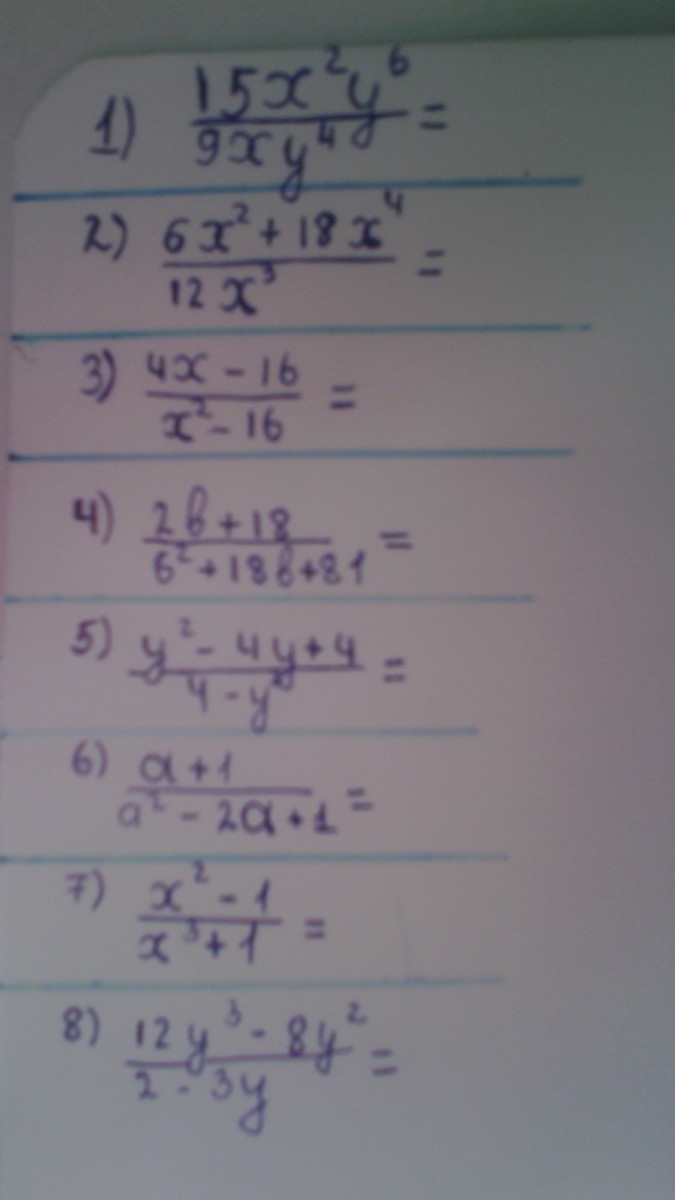 1) 15x²y⁶ / 9xy⁴ =
2) 6x² + 18x⁴ / 12x³ =
3) 4x - 16 / x² - 16 =
4) 2в + 18 / в² + 18в + 81 =
5) y² - 4y + 4 / 4 - y² =
6) a + 1 / a² - 2a + 1 =
7) x² - 1 / x³ + 1 =
8) 12y³ - 8y² / 2 - 3y =